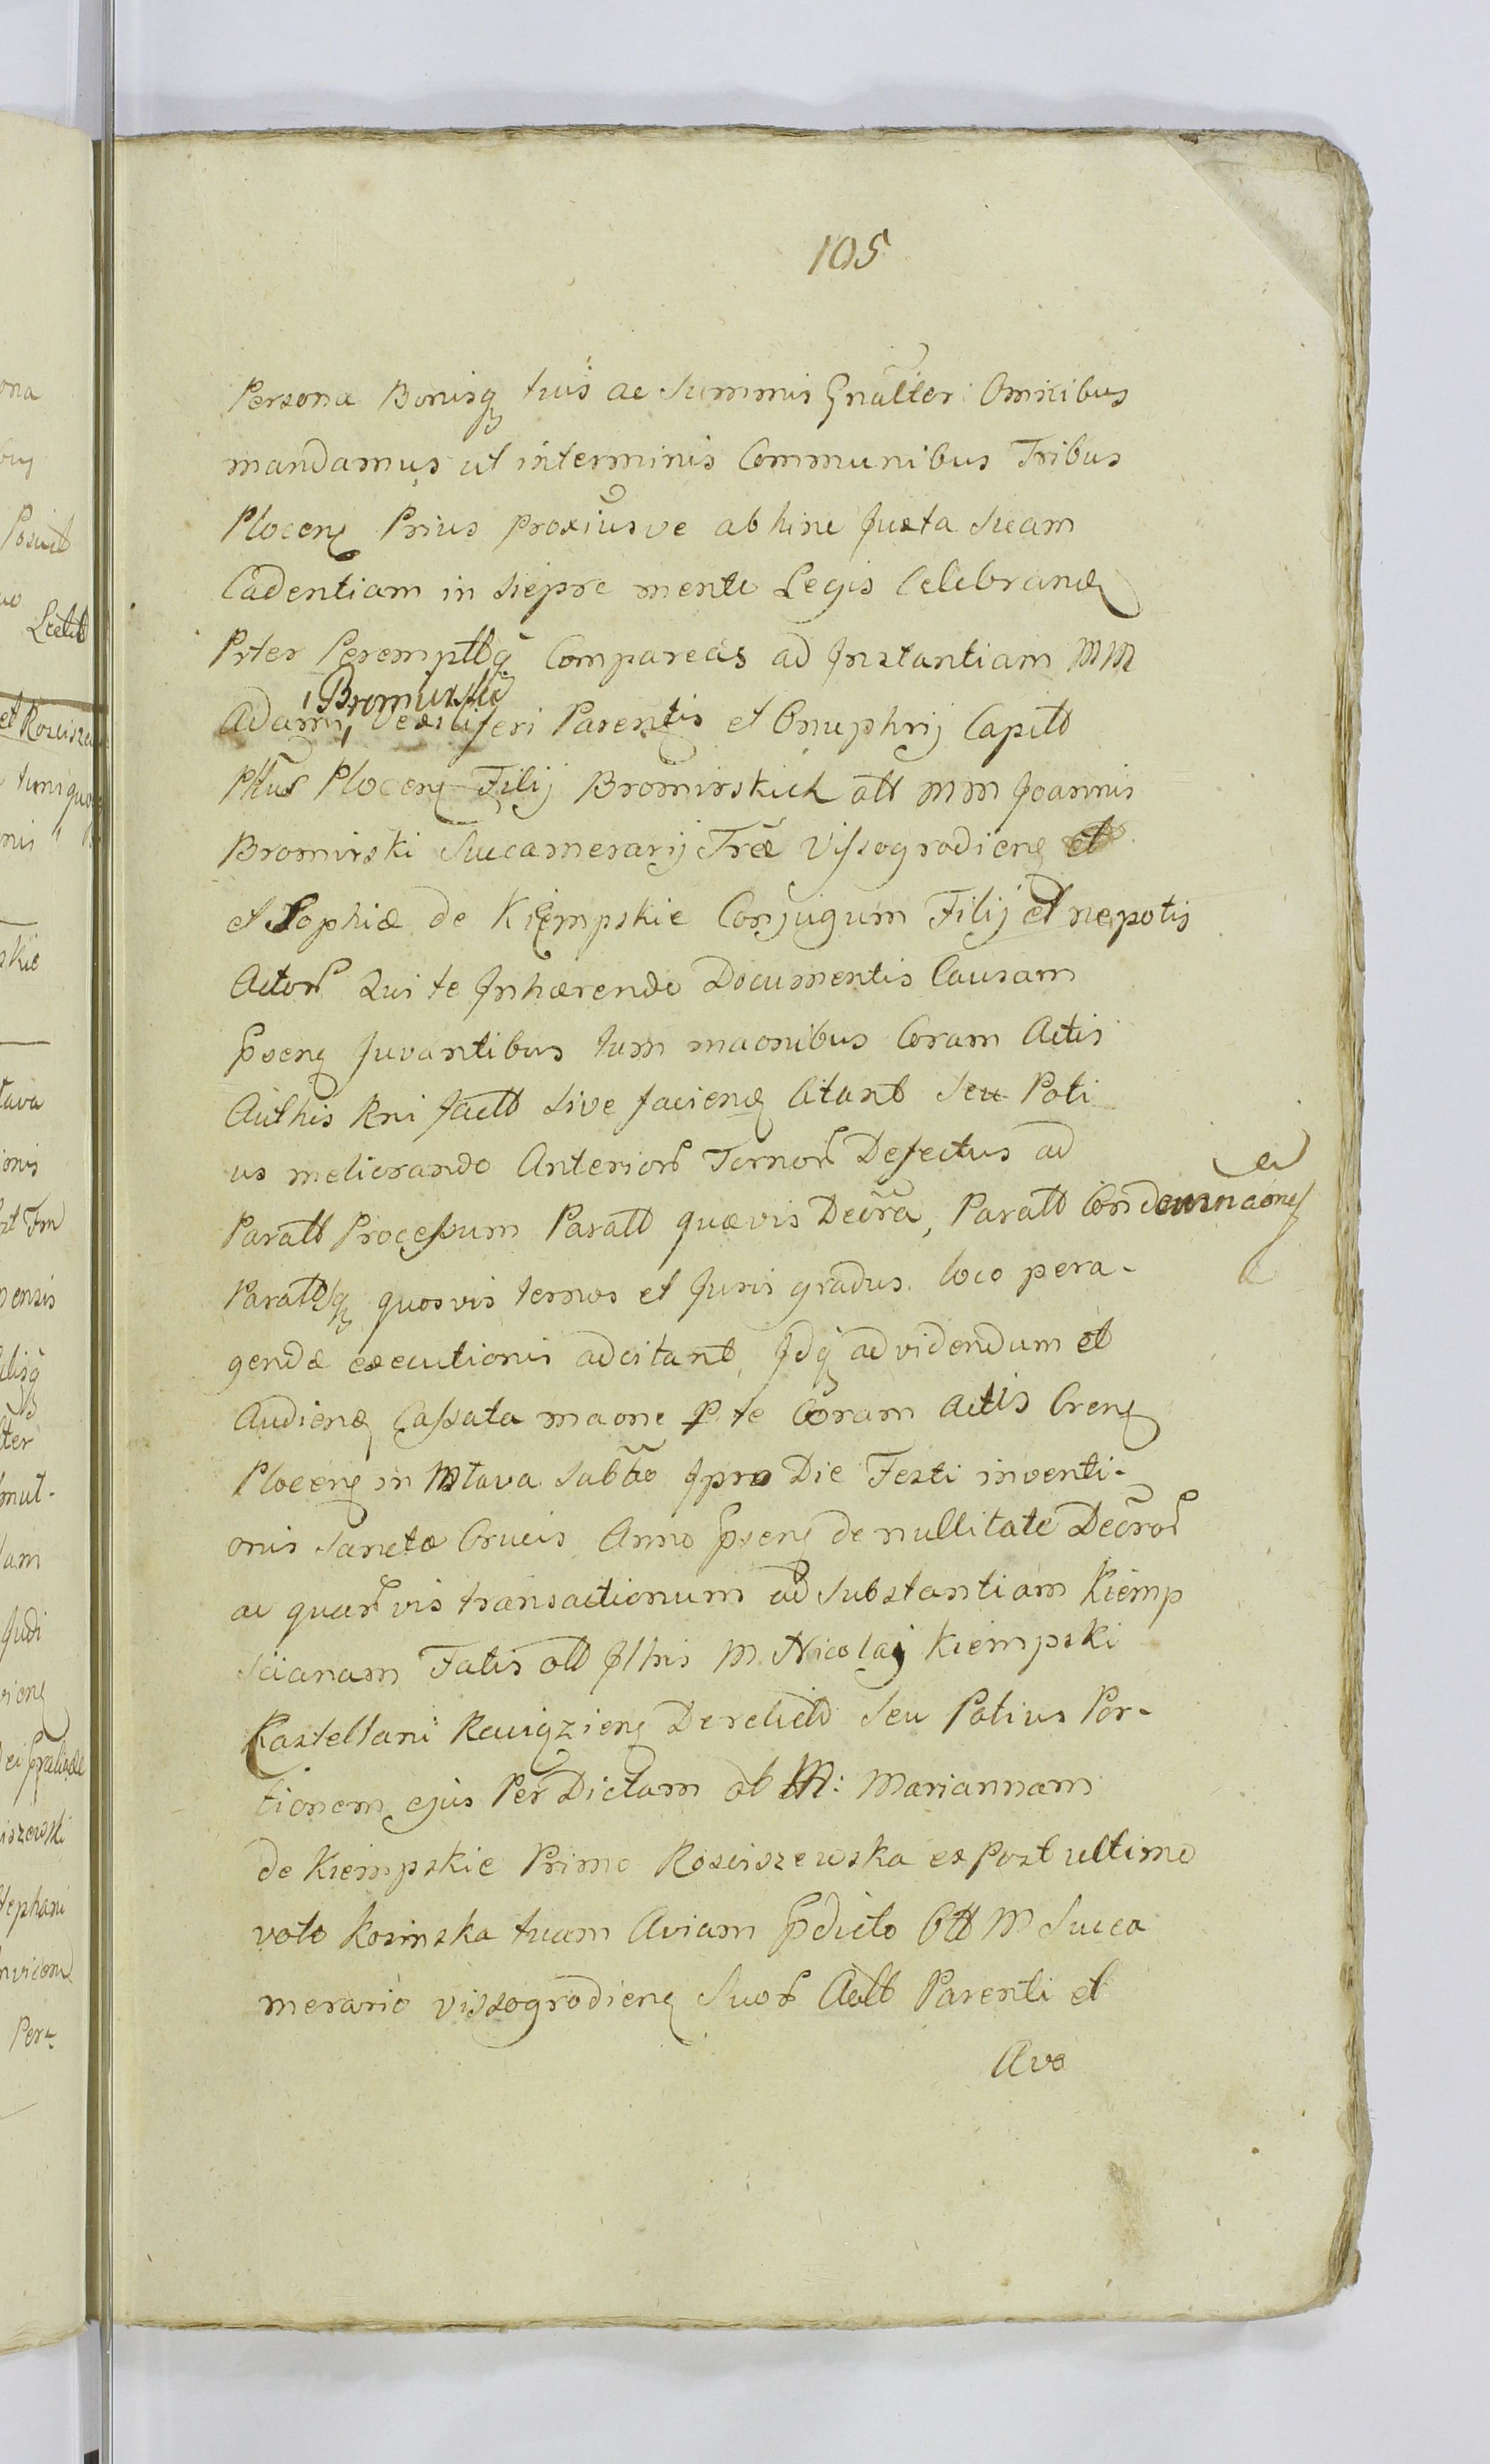 105
Persona Bonisq tuis ac summis Gnãlter Omnibus
mandamus ut interminis Communibus Tribus
Plocen Prius proxiusve abhinc Juxta suam
Cadentiam in Siepre mente Legis Celebrand
Pter Peremptq Compareas ad Instantiam MM
Bromirski
Adami, Vexiliferi Parentis et Onuphrij Capitt
Plocen Filij Bromirskich att MM Joannis
Bromirski Succamerarij Træ Vissogrodien et
et Sophiæ de Kiempskie Conjugum Filij et nepotis
Actor Qui te Inhærendo Documentis Causam
psen Juvantibus tum maonibus Coram Actis
Authis Rni factt sive faciend Citant seu Poti
us meliorando Anterior Ternor Defectus ad
Paratt Processum Paratt quævis Decra, Paratt Condemnaones
Parattq quosvis ternos et Juris gradus loco pera-
gendæ executionis adcitant, Idq ad videndum et
Audiend Cassata maone p te Coram Actis Cren
Plocen in Mlava Sabbo Ipro Die Festi inventi-
onis Sanctæ Crucis Anno psen de nullitate Decror
ac quarvis transactionum ad Substantiam Kiemp
scianam Fatis ott Ilhis M. Nicolaj Kiempski
Kastellani Rawgzien Derelictt seu Potius Por-
tionem ejus Per Dictam ot M: Mariannam
de Kiempskie Primo Rosciszewska ex Post ultimo
voto Kosinska tuam Aviam pdicto Ott M Succa
merario vissogrodien Suor Actt Parenti et
Avo